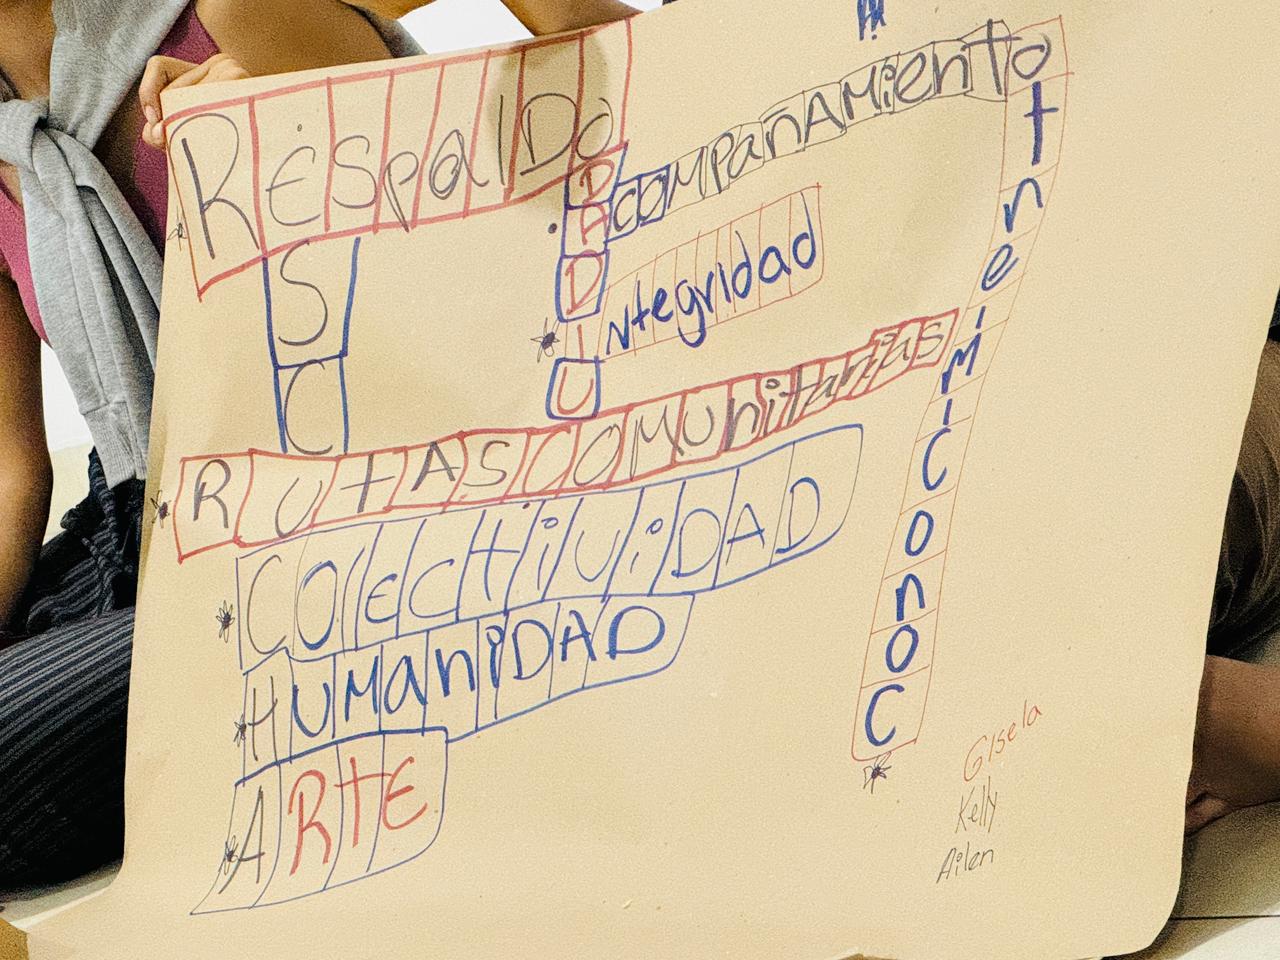 RESpalDo
ACOMPañAMiento
INtegridad
RUTAS COMUnitarias
COlECtiViDAD
HUMAniDAD
ARTE
ESCUCHA
CUIDADO
ConoCiMiento
Gisela
Kelly
Ailen